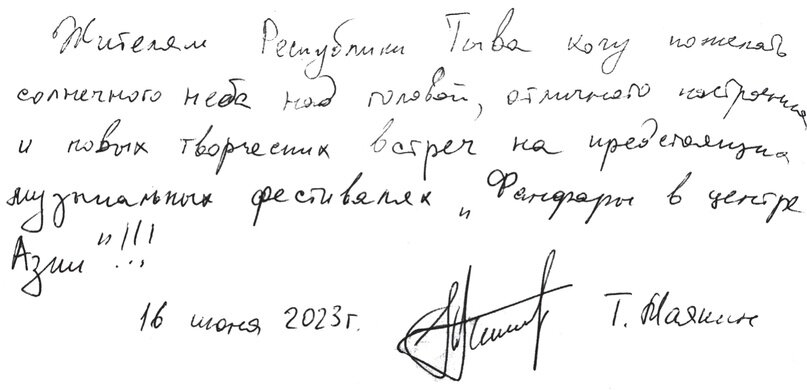 Жителям Республики Тыва хочу пожелать
солнечного неба над головой, отличного настроения
и новых творческих встреч на предстоящих
музыкальных фестивалях „Фанфары в центре
Азии"!!!
16 июня 2023г. Т. Маякин